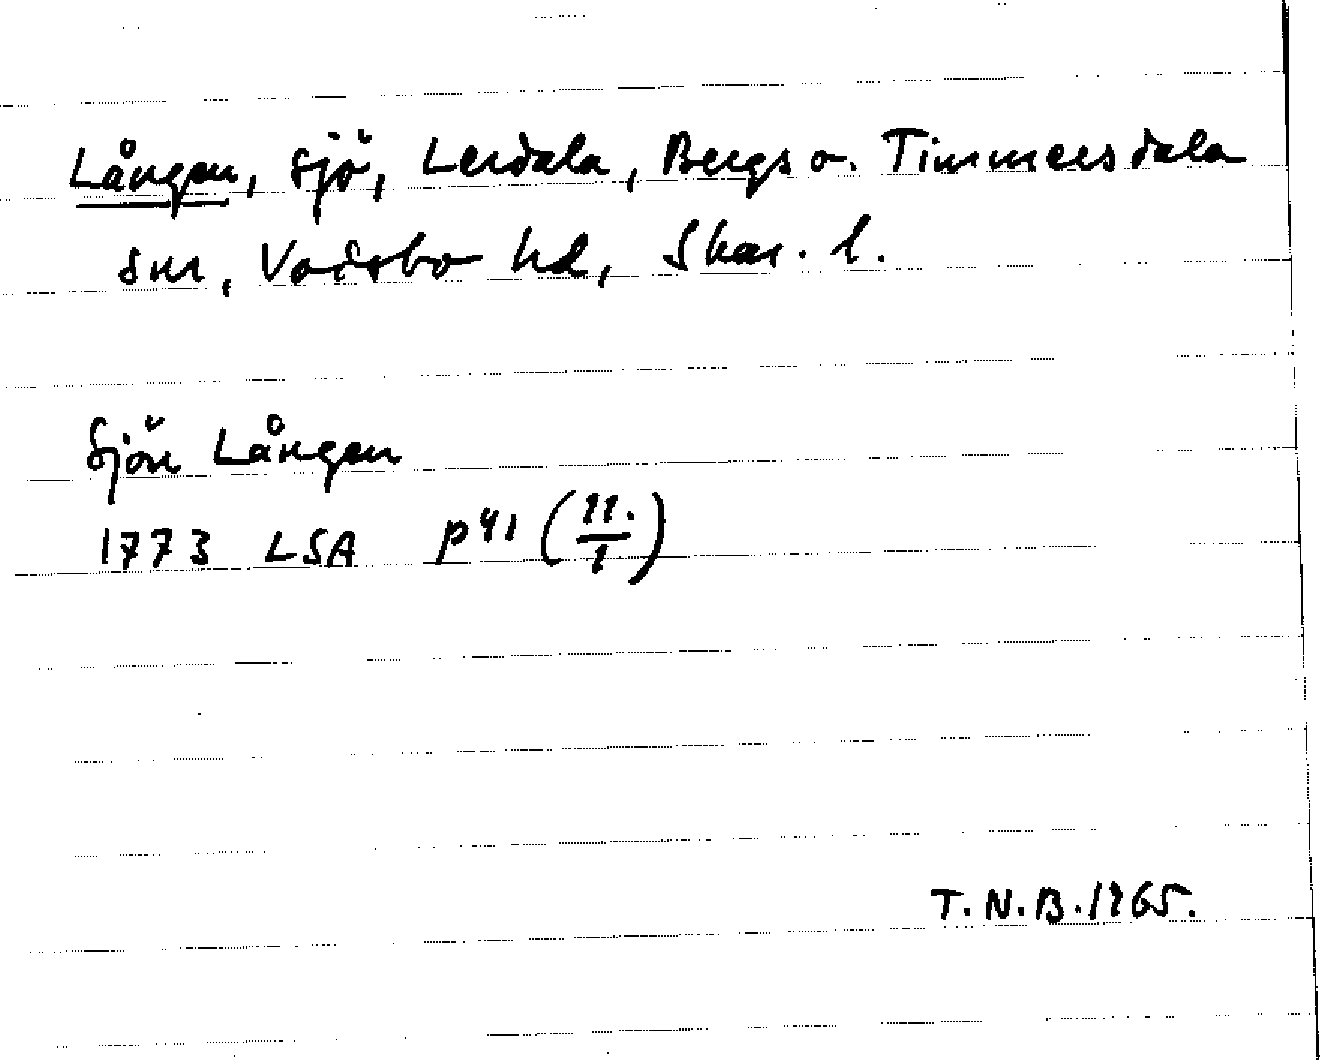 Lången, sjö, Lerdala, Bergs o. Timmersdala
snr, Vadsbo hd, Skar. l.
Sjön Lången
1773 LSA p41 (11./1)
T.N.B. 1965.